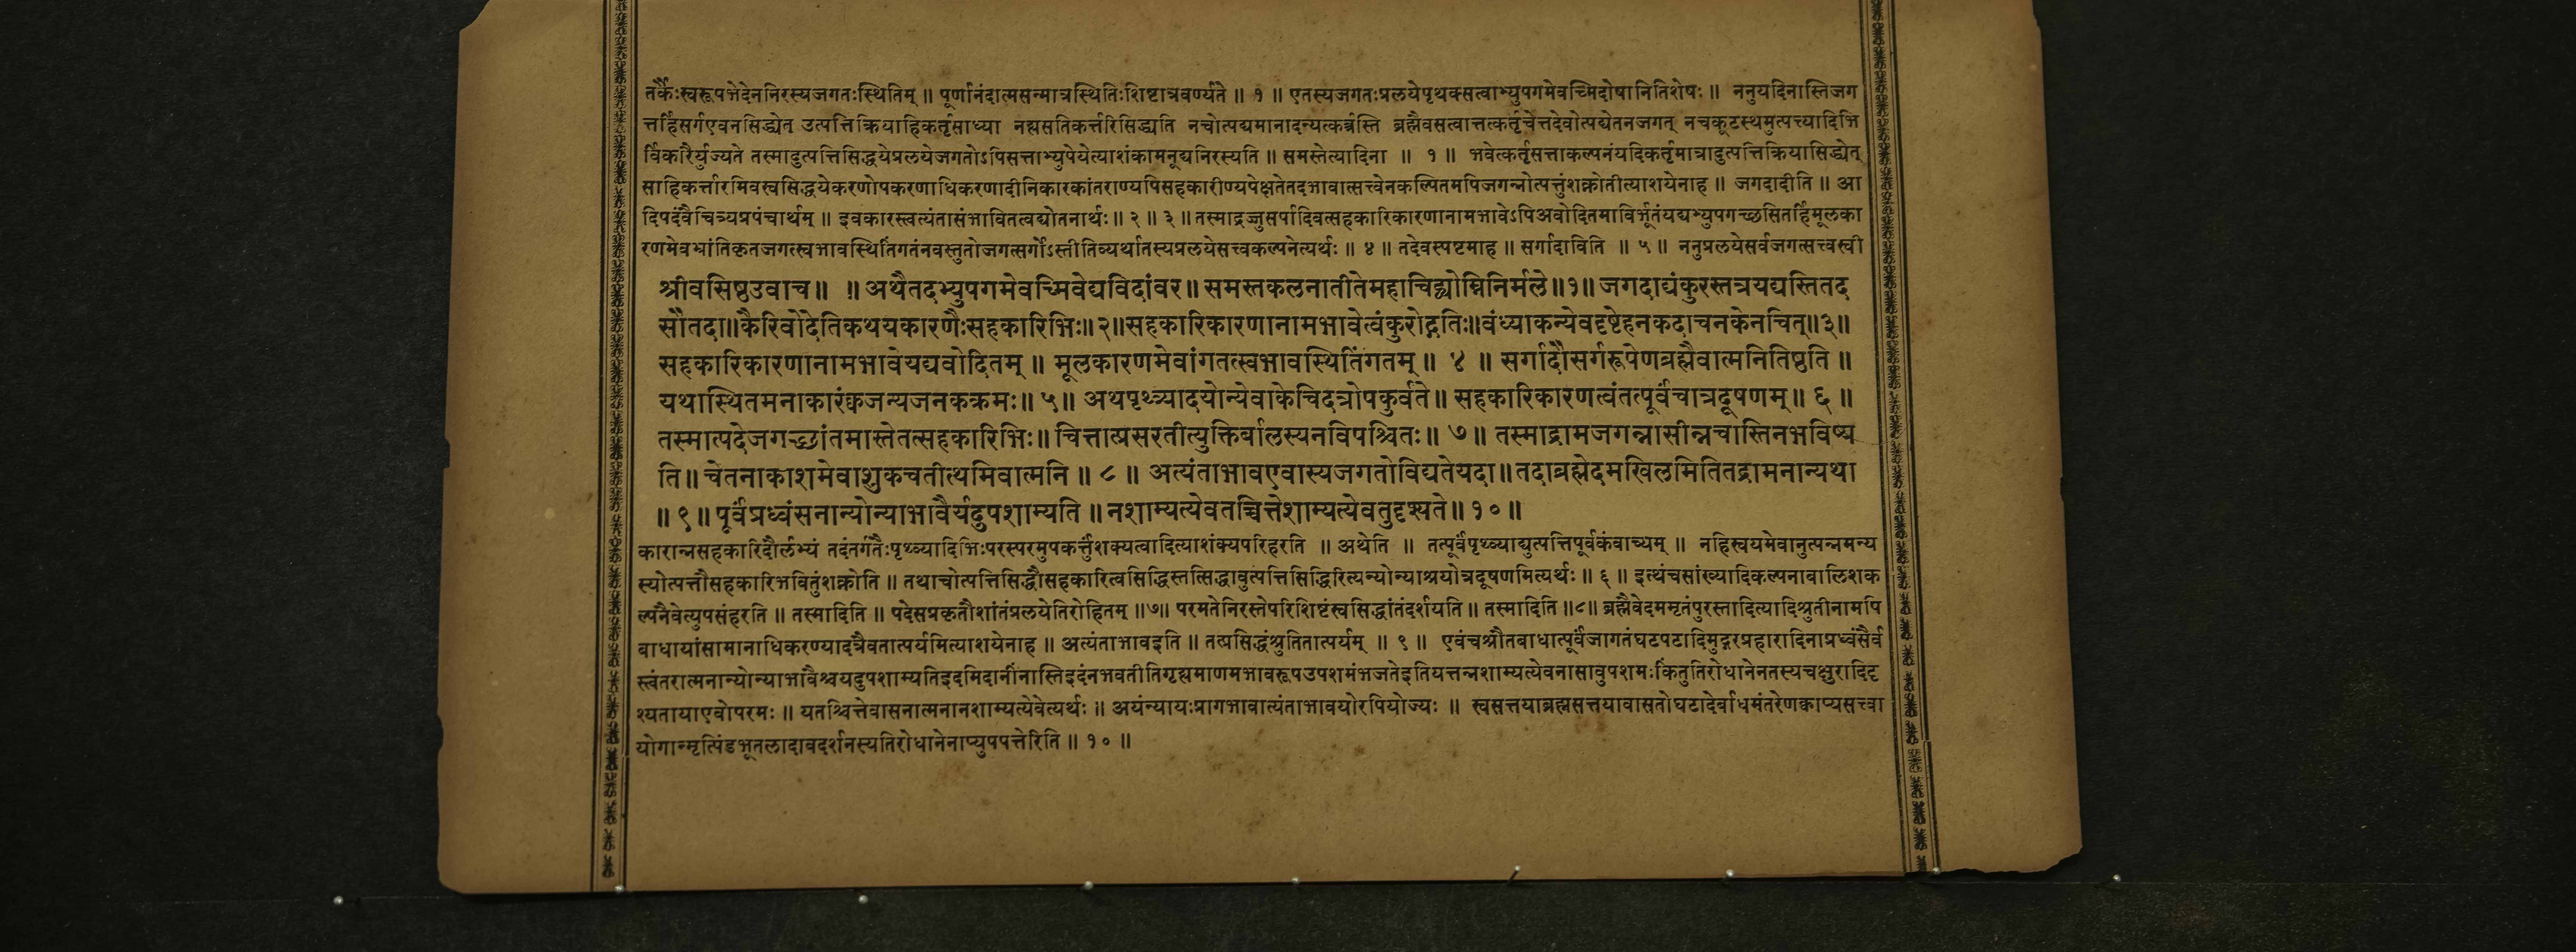 तर्कैःस्वरूपभेदेननिरस्यजगतःस्थितिम् ॥ पूर्णानंदात्मसन्मात्रस्थितिःशिष्टात्रवर्ण्यते ॥ १ ॥ एतस्यजगतःप्रलयेपृथक्सत्वाभ्युपगमेवच्मिदोषानितिशेषः ॥ ननुयदिनास्तिजग
त्तर्हिसर्गएवनसिद्ध्येत् उत्पत्तिक्रियाहिकर्तृसाध्या नह्यसतिकर्त्तरिसिद्ध्यति नचोत्पद्यमानादन्यत्कर्त्रस्ति ब्रह्मैवसत्वात्तत्कर्तृचेत्तदेवोत्पद्येतनजगत् नचकूटस्थमुत्पत्त्यादिभि
र्विकारैर्युज्यते तस्मादुत्पत्तिसिद्धयेप्रलयेजगतोऽपिसत्ताभ्युपेयेत्याशंकामनूद्यनिरस्यति ॥ समस्तेत्यादिना ॥ १ ॥ भवेत्कर्तृसत्ताकल्पनंयदिकर्तृमात्रादुत्पत्तिक्रियासिद्ध्येत्
साहिकर्त्तारमिवस्वसिद्धयेकरणोपकरणाधिकरणादीनिकारकांतराण्यपिसहकारीण्यपेक्षतेतदभावात्सत्त्वेनकल्पितमपिजगन्नोत्पत्तुंशक्नोतीत्याशयेनाह ॥ जगदादीति ॥ आ
दिपदंवैचित्र्यप्रपंचार्थम् ॥ इवकारस्त्वत्यंतासंभावितत्वद्योतनार्थः ॥ २ ॥ ३ ॥ तस्माद्रज्जुसर्पादिवत्सहकारिकारणानामभावेऽपिअवोदितमाविर्भूतंयद्यभ्युपगच्छसितर्हिमूलका
रणमेवभ्रांतिकृतजगत्स्वभावस्थितिंगतंनवस्तुतोजगत्सर्गोऽस्तीतिव्यर्थातस्यप्रलयेसत्त्वकल्पनेत्यर्थः ॥ ४ ॥ तदेवस्पष्टमाह ॥ सर्गादाविति ॥ ५ ॥ ननुप्रलयेसर्वजगत्सत्त्वस्वी
श्रीवसिष्ठउवाच ॥ ॥ अथैतदभ्युपगमेवच्मिवेद्यविदांवर ॥ समस्तकलनातीतेमहाचिद्व्योम्निनिर्मले ॥१॥ जगदाद्यंकुरस्तत्रयद्यस्तितद
सौतदा ॥ कैरिवोदेतिकथयकारणैःसहकारिभिः ॥ २ ॥ सहकारिकारणानामभावेत्वंकुरोद्गतिः ॥ वंध्याकन्येवदृष्टेहनकदाचनकेनचित् ॥३॥
सहकारिकारणानामभावेयद्यवोदितम् ॥ मूलकारणमेवांगतत्स्वभावस्थितिंगतम् ॥ ४ ॥ सर्गादौसर्गरूपेणब्रह्मैवात्मनितिष्ठति ॥
यथास्थितमनाकारंक्वजन्यजनकक्रमः ॥ ५ ॥ अथपृथ्व्यादयोन्येवाकेचिदत्रोपकुर्वते ॥ सहकारिकारणत्वंतत्पूर्वंचात्रदूषणम् ॥ ६ ॥
तस्मात्पदेजगच्छांतमास्तेतत्सहकारिभिः ॥ चित्तात्प्रसरतीत्युक्तिर्बालस्यनविपश्चितः ॥ ७ ॥ तस्माद्रामजगन्नासीन्नचास्तिनभविष्य
ति ॥ चेतनाकाशमेवाशुकचतीत्थमिवात्मनि ॥ ८ ॥ अत्यंताभावएवास्यजगतोविद्यतेयदा ॥ तदाब्रह्मेदमखिलमितितद्रामनान्यथा
॥ ९ ॥ पूर्वंप्रध्वंसनान्योन्याभावैर्यदुपशाम्यति ॥ नशाम्यत्येवतच्चित्तेशाम्यत्येवतुदृश्यते ॥ १० ॥
कारान्नसहकारिदौर्लभ्यं तदंतर्गतैःपृथ्व्यादिभिःपरस्परमुपकर्त्तुंशक्यत्वादित्याशंक्यपरिहरति ॥ अथेति ॥ तत्पूर्वंपृथ्व्याद्युत्पत्तिपूर्वकंवाच्यम् ॥ नहिस्वयमेवानुत्पन्नमन्य
स्योत्पत्तौसहकारिभवितुंशक्नोति ॥ तथाचोत्पत्तिसिद्धौसहकारित्वसिद्धिस्तत्सिद्धावुत्पत्तिसिद्धिरित्यन्योन्याश्रयोत्रदूषणमित्यर्थः ॥ ६ ॥ इत्थंचसांख्यादिकल्पनाबालिशक
ल्पनैवेत्युपसंहरति ॥ तस्मादिति ॥ पदेसप्रकृतौशांतंप्रलयेतिरोहितम् ॥७॥ परमतेनिरस्तेपरिशिष्टंस्वसिद्धांतंदर्शयति ॥ तस्मादिति ॥८॥ ब्रह्मैवेदममृतंपुरस्तादित्यादिश्रुतीनामपि
बाधायांसामानाधिकरण्यादत्रैवतात्पर्यमित्याशयेनाह ॥ अत्यंताभावइति ॥ तत्प्रसिद्धंश्रुतितात्पर्यम् ॥ ९ ॥ एवंचश्रौतबाधात्पूर्वंजागतंघटपटादिमुद्गरप्रहारादिनाप्रध्वंसैर्व
स्त्वंतरात्मनान्योन्याभावैश्चयदुपशाम्यतिइदमिदानींनास्तिइदंनभवतीतिगृह्यमाणमभावरूपउपशमंभजतेइतियत्तन्नशाम्यत्येवनासावुपशमःकिंतुतिरोधानेनतस्यचक्षुरादिदृ
श्यतायाएवोपरमः ॥ यतश्चित्तेवासनात्मनानशाम्यत्येवेत्यर्थः ॥ अयंन्यायःप्रागभावात्यंताभावयोरपियोज्यः ॥ स्वसत्तयाब्रह्मसत्तयावासतोघटादेर्बाधमंतरेणक्वाप्यसत्त्वा
योगान्मृत्पिंडभूतलादावदर्शनस्यतिरोधानेनाप्युपपत्तेरिति ॥ १० ॥